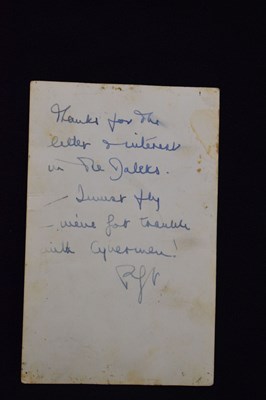 Thanks for the
letter & interest
in The Daleks.
— I must fly
— we've got trouble
with Cybermen!